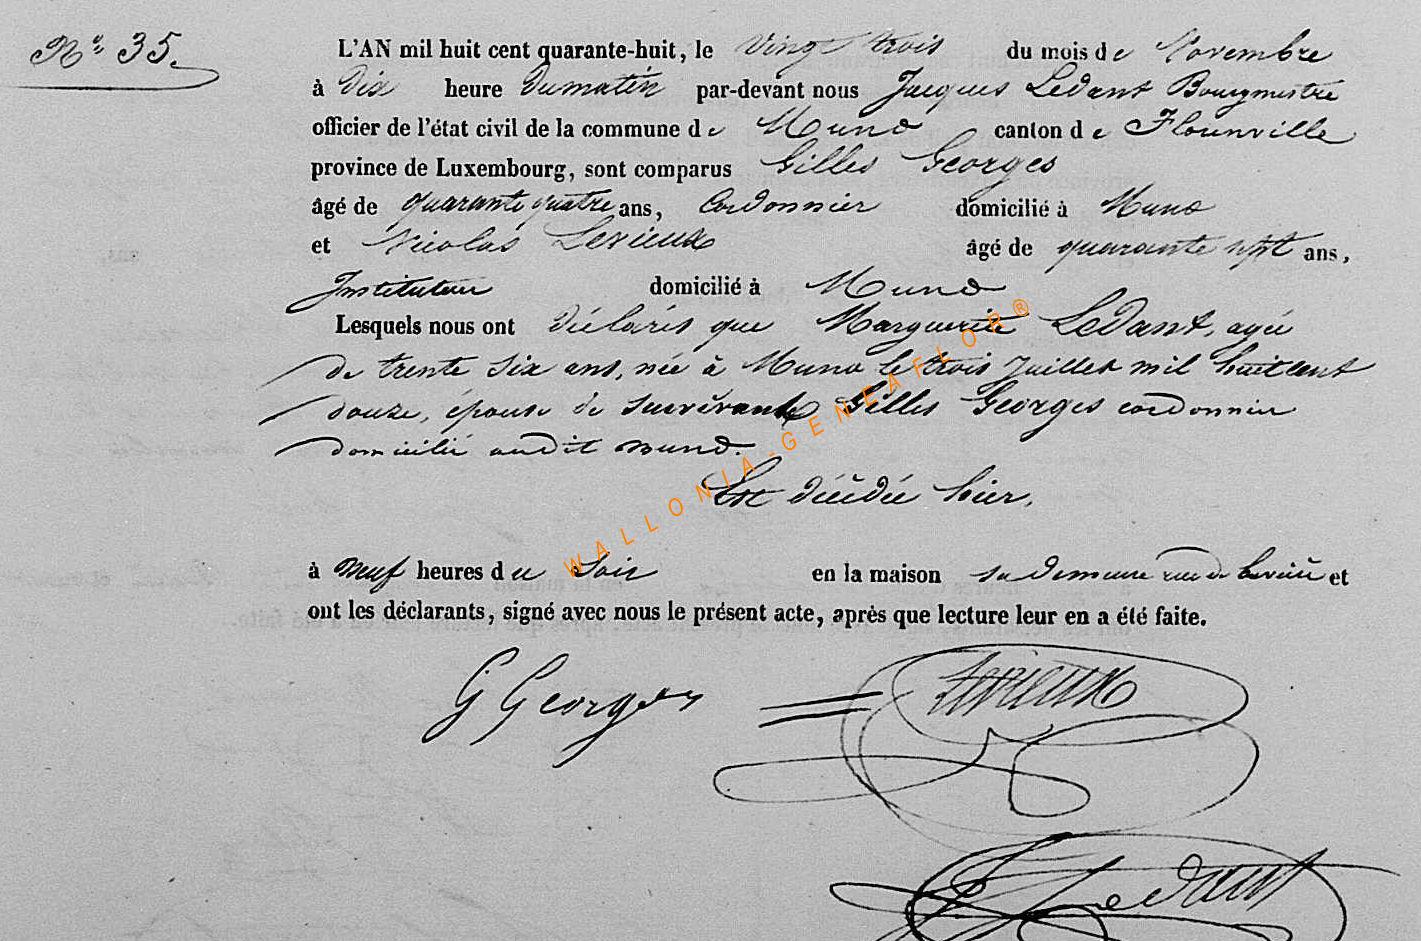 N° 35.
L'AN mil huit cent quarante-huit, le Vingt trois du mois de Novembre
à Dix heure Dumatin par-devant nous Jacques Ledant Bourgmestre
officier de l'état civil de la commune de Muno canton de Florenville
province de Luxembourg, sont comparus Gilles Georges
âgé de quarante quatre ans, Cordonnier domicilié à Muno
et Nicolas Lerieux âgé de quarante sept ans,
Instituteur domicilié à Muno
Lesquels nous ont déclarés que Marguerite Ledant, agée
de trente six ans, née à Muno le trois Juillet mil huit cent
douze, épouse de survivante Gilles Georges cordonnier
domicilié audit muno.
Est décédée hier,
à Neuf heures du Soir en la maison sa demeure rue de et
ont les déclarants, signé avec nous le présent acte, après que lecture leur en a été faite.
G Georges Lerieux
Ledant
WALLONIA-GENEAFLOR®